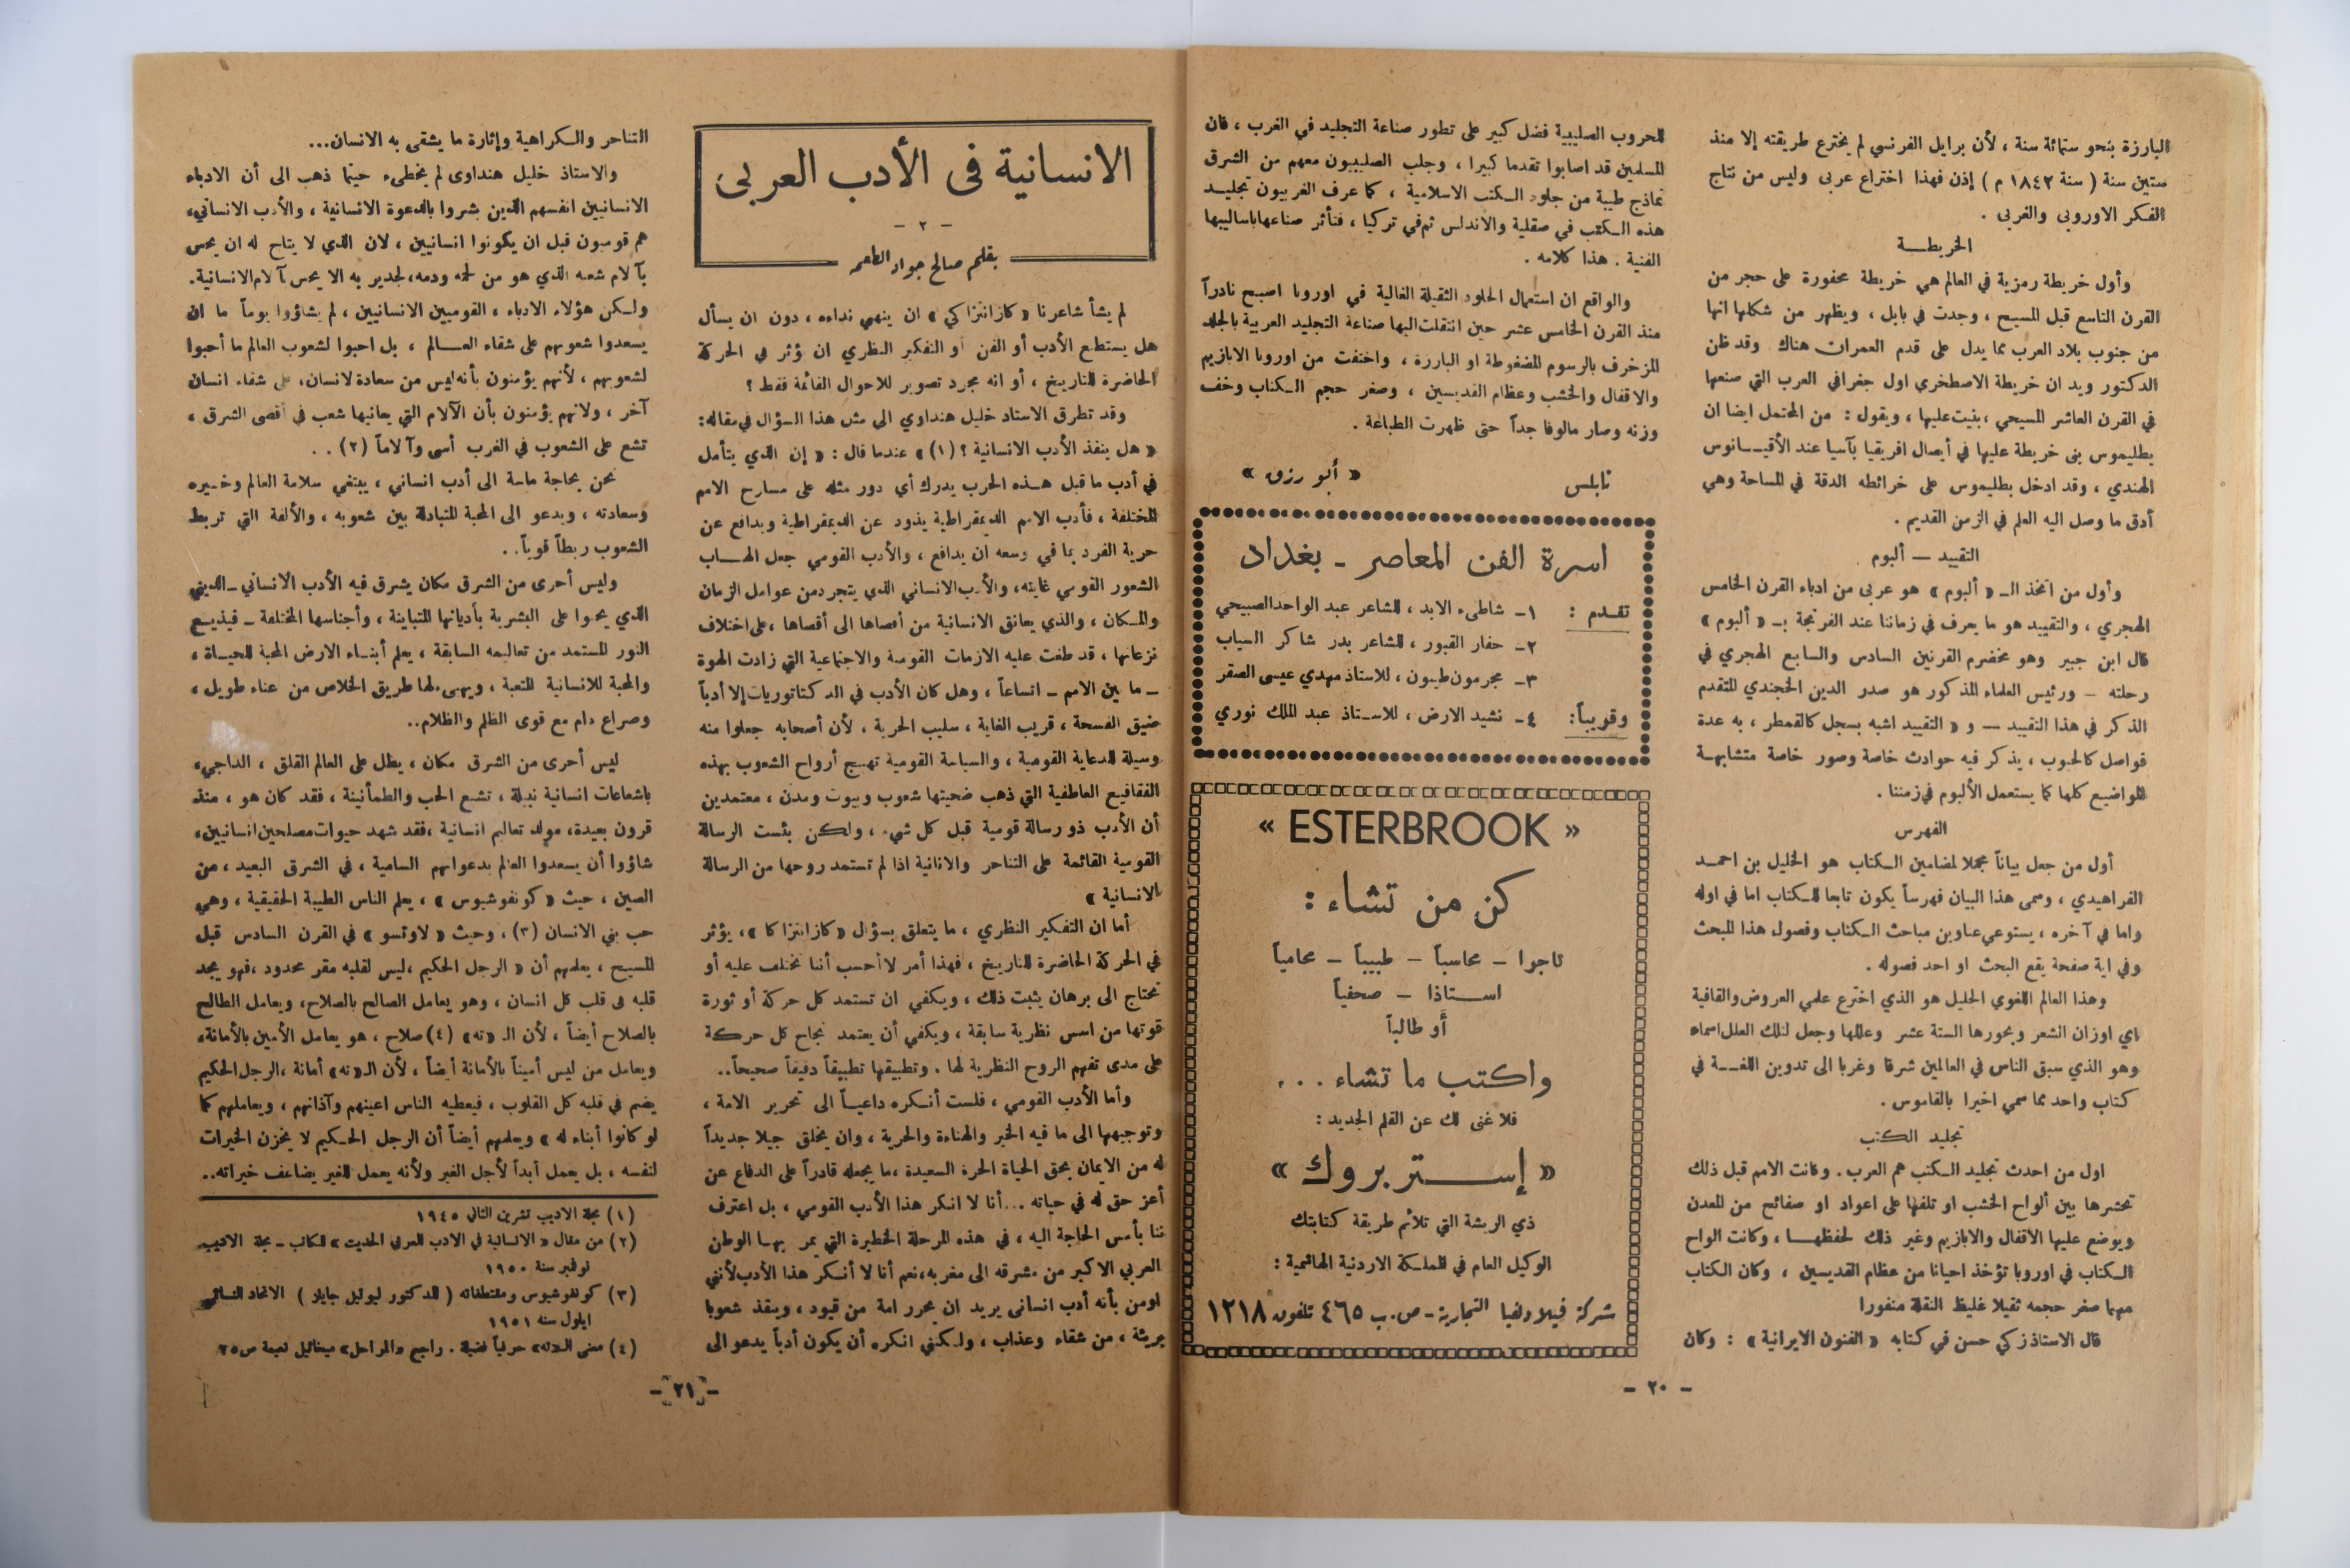 البارزة بنحو ستمائة سنة ، لأن برايل الفرنسي لم يخترع طريقته إلا منذ
ستين سنة ( سنة ١٨٤٢ م ) إذن فهذا اختراع عربى وليس من نتاج
الفكر الاوروبى والغربى .
الخريطــة
وأول خريطة رمزية في العالم هي خريطة محفورة على حجر من
القرن التاسع قبل المسيح ، وجدت في بابل ، ويظهر من شكلها انها
من جنوب بلاد العرب مما يدل على قدم العمران هناك وقد ظن
الدكتور ويد ان خريطة الاصطخري اول جغرافي العرب التي صنعها
في القرن العاشر المسيحي ، بنيت عليها ، ويقول : من المحتمل ايضا ان
بطليموس بنى خريطة عليها في أيصال افريقيا بآسيا عند الأقيــانوس
الهندي ، وقد ادخل بطليموس على خرائطه الدقة في المساحة وهي
أدق ما وصل اليه العلم في الزمن القديم .
التقييد — ألبوم
وأول من اتخذ الـ « ألبوم » هو عربى من ادباء القرن الخامس
الهجري ، والتقييد هو ما يعرف في زماننا عند الفرنجة بـ « ألبوم »
قال ابن جبير وهو مخضرم القرنين السادس والسابع الهجري في
رحلته - ورئيس العلماء المذكور هو صدر الدين الخجندي المتقدم
الذكر في هذا التقييد — و « التقييد اشبه بسجل كالقمطر ، به عدة
فواصل كالحبوب ، يذكر فيه حوادث خاصة وصور خاصة متشابهـة
المواضيع كلها كما يستعمل الألبوم في زمننا .
الفهرس
أول من جعل بياناً مجملا لمضامين الـكتاب هو الخليل بن احمـد
الفراهيدي ، وسمى هذا البيان فهرساً يكون تابعا للـكتاب اما في اوله
واما في آخره ، يستوعي عناوين مباحث الـكتاب وفصول هذا المبحث
وفي اية صفحة يقع البحث او احد فصوله .
وهذا العالم اللغوي الجليل هو الذي اخترع علمي العروض والقافية
اي اوزان الشعر وبحورها الستة عشر وعللها وجعل لتلك العلل اسماء
وهو الذي سبق الناس في العالمين شرقا وغربا الى تدوين اللغــة في
كتاب واحد مما سمي اخيرا بالقاموس .
تجليد الكتب
اول من احدث تجليد الـكتب هم العرب . وكانت الامم قبل ذلك
تحشرها بين ألواح الخشب او تلفها على اعواد او صفائح من المعدن
ويوضع عليها الاقفال والابازيم وغير ذلك لحفظهــا ، وكانت الواح
الـكتاب في اوروبا تؤخذ احيانا من عظام القديسين ، وكان الكتاب
مهما صغر حجمه ثقيلا غليظ النقلة منفورا
قال الاستاذ زكي حسن في كتابه « الفنون الايرانية » : وكان
للحروب الصليبية فضل كبير على تطور صناعة التجليد في الغرب ، فان
المسلمين قد اصابوا تقدما كبيرا ، وجلب الصليبيون معهم من الشرق
نماذج طيبة من جلود الـكتب الاسلامية ، كما عرف الغربيون تجليــد
هذه الـكتب في صقلية والاندلس ثم في تركيا ، فتأثر صناعها باساليبها
الفنية . هذا كلامه .
والواقع ان استعمال الجلود الثقيلة الغالية في اوروبا اصبح نادراً
منذ القرن الخامس عشر حين انتقلت اليها صناعة التجليد العربية بالجلد
المزخرف بالرسوم المضغوطة او البارزة ، واختفت من اوروبا الابازيم
والاقفال والخشب وعظام القديسين ، وصغر حجم الـكتاب وخف
وزنه وصار مالوفا جداً حتى ظهرت الطباعة .
نابلس « أبو رزق »
اسرة الفن المعاصر - بغداد
تقـدم : ١- شاطىء الابد ، للشاعر عبد الواحد الصبيحي
٢- حفار القبور ، للشاعر بدر شاكر السياب
٣- مجرمون طيبون ، للاستاذ مهدي عيسى الصقر
وقريباً: ٤- نشيد الارض ، للاسـتاذ عبد الملك نوري
« ESTERBROOK »
كن من تشاء :
تاجرا - محاسباً - طبيباً - محامياً
اسـتاذا - صحفياً
أو طالباً
واكتب ما تشاء . . .
فلا غنى لك عن القلم الجديد :
« إستربروك »
ذي الريشة التي تلائم طريقة كتابتك
الوكيل العام في المملـكة الاردنية الهاشمية :
شركة فيلادلفيا التجارية - ص.ب ٤٦٥ تلفون ١٢١٨
- ٢٠ -
الانسانية فى الأدب العربى
- ٢ -
بقلم صالح جواد الطعمه
لم يشأ شاعرنا « كازانتزاكي » ان ينهي نداءه ، دون ان يسأل
هل يستطيع الأدب أو الفن أو التفكير النظري ان يؤثر في الحركة
الحاضرة للتاريخ ، أو انه مجرد تصوير للاحوال القائمة فقط ؟
وقد تطرق الاستاذ خليل هنداوي الى مثل هذا السؤال في مقاله :
« هل ينقذ الأدب الانسانية ؟ (١) » عندما قال : « إن الذي يتأمل
في أدب ما قبل هـذه الحرب يدرك أي دور مثله على مسارح الامم
المختلفة ، فأدب الامم الديمقراطية يذود عن الديمقراطية ويدافع عن
حرية الفرد بما في وسعه ان يدافع ، والأدب القومي جعل الهـاب
الشعور القومي غايته ، والأدب الانساني الذي يتجرد من عوامل الزمان
والمـكان ، والذي يعانق الانسانية من أقصاها الى أقصاها ، على اختلاف
نزعاتها ، قد طغت عليه الازمات القومية والاجتماعية التي زادت الهوة
- ما بين الامم - اتساعاً ، وهل كان الأدب في الدكتاتوريات إلا أدباً
ضيق الفسحة ، قريب الغاية ، سليب الحرية ، لأن أصحابه جعلوا منه
وسيلة للدعاية القومية ، والسياسة القومية تهيج أرواح الشعوب بهذه
الفقاقيع العاطفية التي ذهب ضحيتها شعوب وبيوت ومدن ، معتمدين
أن الأدب ذو رسالة قومية قبل كل شيء ، ولكن بئست الرسالة
القومية القائمة على التناحر والانانية اذا لم تستمد روحها من الرسالة
الانسانية »
أما ان التفكير النظري ، ما يتعلق بسؤال « كازانتزاكا » ، يؤثر
في الحركة الحاضرة للتاريخ ، فهذا أمر لا أحسب أننا نختلف عليه أو
نحتاج الى برهان يثبت ذلك ، ويكفي ان تستمد كل حركة أو ثورة
قوتها من اسس نظرية سابقة ، ويكفي أن يعتمد نجاح كل حركة
على مدى تفهم الروح النظرية لها . وتطبيقها تطبيقاً دقيقاً صحيحاً..
وأما الأدب القومي ، فلست أنـكره داعيـاً الى تحرير الامة ،
وتوجيهها الى ما فيه الخير والهناءة والحرية ، وان يخلق جيلا جديداً
له من الايمان بحق الحياة الحرة السعيدة ، ما يجعله قادراً على الدفاع عن
أعز حق له في حياته ... أنا لا انـكر هذا الأدب القومي ، بل اعترف
بأمس الحاجة اليه ، في هذه المرحلة الخطيرة التي يمر بهـا الوطن
العربي الاكبر من مشرقه الى مغربه ، نعم أنا لا أنـكر هذا الأدب لأنني
اومن بأنه أدب انسانى يريد ان يحرر امة من قيود ، وينقذ شعوبا
بريئة ، من شقاء وعذاب ، ولـكنني انكره أن يكون أدباً يدعو الى
التناحر والـكراهية وإثارة ما يشقى به الانسان...
والاستاذ خليل هنداوى لم يخطىء حينما ذهب الى أن الادباء
الانسانيين انفسهم الذين بشروا بالدعوة الانسانية ، والأدب الانساني،
هم قوميون قبل ان يكونوا انسانيين ، لان الذي لا يتاح له ان يحس
بآلام شعبه الذي هو من لحمه ودمه ، لجدير به الا يحس آلام الانسانية.
ولـكن هؤلاء الادباء ، القوميين الانسانيين ، لم يشاؤوا يوماً ما ان
يسعدوا شعوبهم على شقاء العـــالم ، بل احبوا لشعوب العالم ما أحبوا
لشعوبهم ، لأنهم يؤمنون بأنه ليس من سعادة لانسان ، على شقاء انسان
آخر ، ولانهم يؤمنون بأن الآلام التي يعانيها شعب في أقصى الشرق ،
تشع على الشعوب في الغرب أسى وآلاماً (٢) . .
نحن بحاجة ماسة الى أدب انساني ، يبتغي سلامة العالم وخـيره
وسعادته ، ويدعو الى المحبة المتبادلة بين شعوبه ، والألفة التي تربط
الشعوب ربطاً قوياً . .
وليس أحرى من الشرق مكان يشرق فيه الأدب الانساني - الديني
الذي يحوا على البشرية بأديانها المتباينة ، وأجناسها المختلفة - فيذيـع
النور المستمد من تعاليمه السابقة ، يعلم أبنـاء الارض المحبة للحيـاة ،
والمحبة للانسانية المتعبة ، ويهيء لها طريق الخلاص من عناء طويل ،
وصراع دام مع قوى الظلم والظلام..
ليس أحرى من الشرق مكان ، يطل على العالم القلق ، الداجي،
باشعاعات انسانية نبيلة ، تشيع الحب والطمأنينة ، فقد كان هو ، منذ
قرون بعيدة ، مولد تعاليم انسانية ، فقد شهد حيوات مصلحين انسانيين،
شاؤوا أن يسعدوا العالم بدعواتهم السامية ، في الشرق البعيد ، من
الصين ، حيث « كونفوشيوس » ، يعلم الناس الطيبة الحقيقية ، وهي
حب بني الانسان (٣) ، وحيث « لاوتسو » في القرن السادس قبل
المسيح ، يعلمهم أن « الرجل الحكيم ، ليس لقلبه مقر محدود ، فهو يجد
قلبه فى قلب كل انسان ، وهو يعامل الصالح بالصلاح ، ويعامل الطالح
بالصلاح أيضاً ، لأن الـ «ته» (٤) صلاح ، هو يعامل الأمين بالأمانة،
ويعامل من ليس أميناً بالأمانة أيضاً ، لأن الـ «ته» أمانة ، الرجل الحكيم
يضم في قلبه كل القلوب ، فيعطيه الناس اعينهم وآذانهم ، ويعاملهم كما
لو كانوا أبناء له » ويعلمهم أيضاً أن الرجل الحـكيم لا يخزن الخيرات
لنفسه ، بل يعمل أبداً لأجل الغير ولأنه يعمل للغير يضاعف خيراته..
(١) مجلة الاديب تشرين الثاني ١٩٤٥
(٢) من مقال « الانسانية في الادب العربي الحديث » للكاتب - مجلة الاديب
نوفمبر سنة ١٩٥٠
(٣) كونفوشيوس ومقتطفاته ( للدكتور ليونيل جايلز ) الاتحاد النسائي
ايلول سنة ١٩٥١
(٤) معنى الـ «ته» حرفياً فضيلة . راجع «المراحل» ميخائيل نعيمة ص ٢٥
- ٢١ -